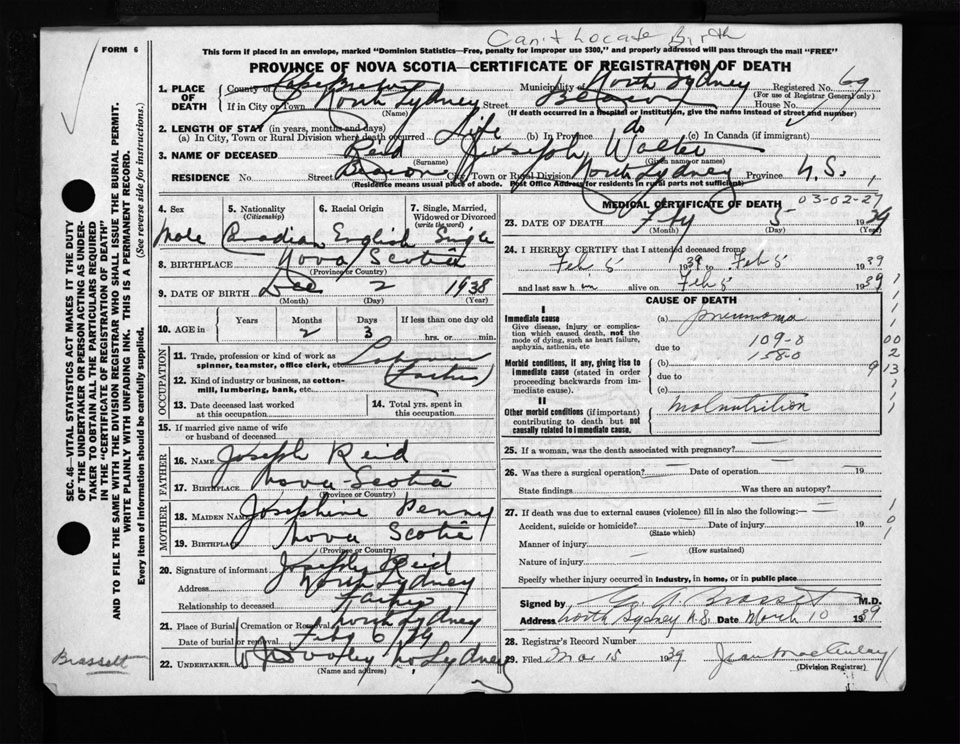 Can't Locate Birth
FORM 6
This form if placed in an envelope, marked "Dominion Statistics—Free, penalty for improper use $300," and properly addressed will pass through the mail "FREE"
PROVINCE OF NOVA SCOTIA—CERTIFICATE OF REGISTRATION OF DEATH
1. PLACE OF DEATH
County of Cape Breton Municipality of North Sydney Registered No. 69
(For use of Registrar General only)
If in City or Town North Sydney Street Beacon House No.
(Name) (If death occurred in a hospital or institution, give the name instead of street and number)
2. LENGTH OF STAY (in years, months and days)
(a) In City, Town or Rural Division where death occurred Life (b) In Province do (c) In Canada (if immigrant)
3. NAME OF DECEASED Reid Joseph Walter
(Surname) (Given name or names)
RESIDENCE No. Street Beacon City, Town or Rural Division North Sydney Province N.S.
(Residence means usual place of abode. Post Office Address for residents in rural parts not sufficient)
4. Sex Male
5. Nationality (Citizenship) Canadian
6. Racial Origin English
7. Single, Married, Widowed or Divorced (write the word) Single
8. BIRTHPLACE Nova Scotia
(Province or Country)
9. DATE OF BIRTH Dec 2 1938
(Month) (Day) (Year)
10. AGE in Years Months 2 Days 3 If less than one day old hrs. or min.
OCCUPATION
11. Trade, profession or kind of work as spinner, teamster, office clerk, etc. Labourer
12. Kind of industry or business, as cotton-mill, lumbering, bank, etc. (Father)
13. Date deceased last worked at this occupation
14. Total yrs. spent in this occupation
15. If married give name of wife or husband of deceased
FATHER
16. NAME Joseph Reid
17. BIRTHPLACE Nova Scotia
(Province or Country)
MOTHER
18. MAIDEN NAME Josephine Penny
19. BIRTHPLACE Nova Scotia
(Province or Country)
20. Signature of informant Joseph Reid
Address North Sydney
Relationship to deceased Father
21. Place of Burial, Cremation or Removal North Sydney
Date of burial or removal Feby 6 39
22. UNDERTAKER No Sydney
(Name and address)
MEDICAL CERTIFICATE OF DEATH 03-02-27
23. DATE OF DEATH Fby 5 1939
(Month) (Day) (Year)
24. I HEREBY CERTIFY that I attended deceased from
Feb 5 1939 to Feb 5 1939
and last saw h im alive on Feb 5 1939
CAUSE OF DEATH
I
Immediate cause (a) pneumonia
Give disease, injury or complication which caused death, not the mode of dying, such as heart failure, asphyxia, asthenia, etc
due to 109-0
Morbid conditions, if any, giving rise to immediate cause (stated in order proceeding backwards from immediate cause).
(b) 158-0
due to
(c)
II
Other morbid conditions (if important) contributing to death but not causally related to immediate cause.
malnutrition
25. If a woman, was the death associated with pregnancy?
26. Was there a surgical operation? Date of operation 19
State findings Was there an autopsy?
27. If death was due to external causes (violence) fill in also the following:—
Accident, suicide or homicide? Date of injury 19
(State which)
Manner of injury
(How sustained)
Nature of injury
Specify whether injury occurred in industry, in home, or in public place
Signed by G A Brassett M.D.
Address North Sydney N.S. Date March 10 1939
28. Registrar's Record Number
29. Filed Mar 15 1939 Jean MacAulay
(Division Registrar)
SEC. 46—VITAL STATISTICS ACT MAKES IT THE DUTY OF THE UNDERTAKER OR PERSON ACTING AS UNDERTAKER TO OBTAIN ALL THE PARTICULARS REQUIRED IN THE "CERTIFICATE OF REGISTRATION OF DEATH"
AND TO FILE THE SAME WITH THE DIVISION REGISTRAR WHO SHALL ISSUE THE BURIAL PERMIT.
WRITE PLAINLY WITH UNFADING INK. THIS IS A PERMANENT RECORD.
Every item of Information should be carefully supplied. (See reverse side for instructions.)
Brassett